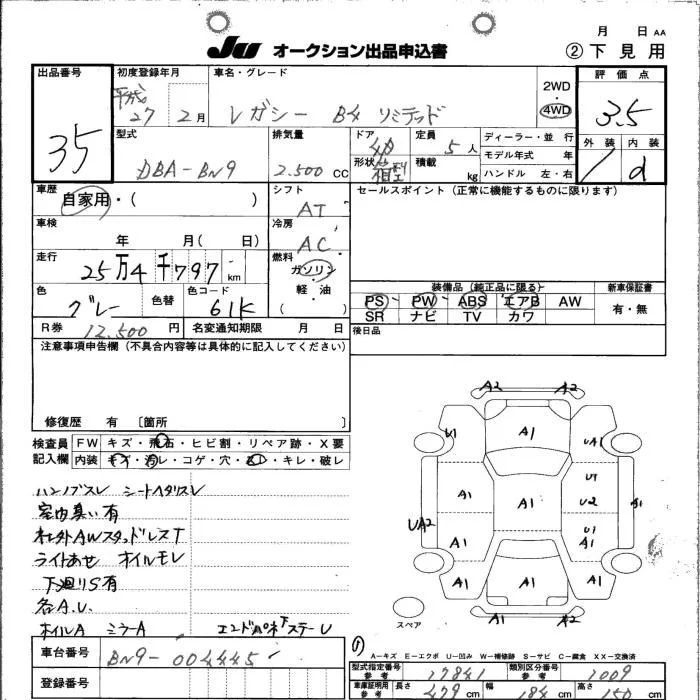 月 日 AA
JU オークション出品申込書 ② 下見用
出品番号 35
初度登録年月 平成 27 2月
車名・グレード レガシー B4 リミテッド
2WD・4WD
評価点 3.5
型式 DBA-BN9
排気量 2.500 CC
ドア 4
形状 箱型
定員 5人
積載 kg
ディーラー・並 行
モデル年式 年
ハンドル 左・右
外装 内装 d
車歴 自家用・( )
シフト AT
セールスポイント(正常に機能するものに限ります)
車検 年 月( 日)
冷房 AC
走行 25万4千797 km
燃料 ガソリン 軽・油 ( )
色 グレー 色替 色コード 61K
装備品(純正品に限る) 新車保証書
PS PW ABS エアB AW 有・無
SR ナビ TV カワ
R券 12.500 円 名変通知期限 月 日
後日品
注意事項申告欄(不具合内容等は具体的に記入してください)
修復歴 有 [箇所 ]
検査員記入欄
FW キズ・飛石・ヒビ割・リペア跡・X要
内装 キズ・汚レ・コゲ・穴・切レ・破レ
ハンドルスレ シートヘタリスレ
室内臭い有
社外AWスタッドレスT
ライトあせ オイルモレ
下廻りS有
各A.U.
ホイルA ミラーA
A2 A2
U1 A1 UA1
U1
A1 A1 U2 A1
UA2
U1
A1 A1
A1 A1 A1
A1 A2
スペア
A-キズ E-エクボ U-凹み W-補修跡 S-サビ C-腐食 XX-交換済
車台番号 BN9-004445
登録番号
型式指定番号 参考 17841 類別区分番号 参考 1009
車庫証明用 参考 長さ 479 cm 幅 184 cm 高さ 150 cm